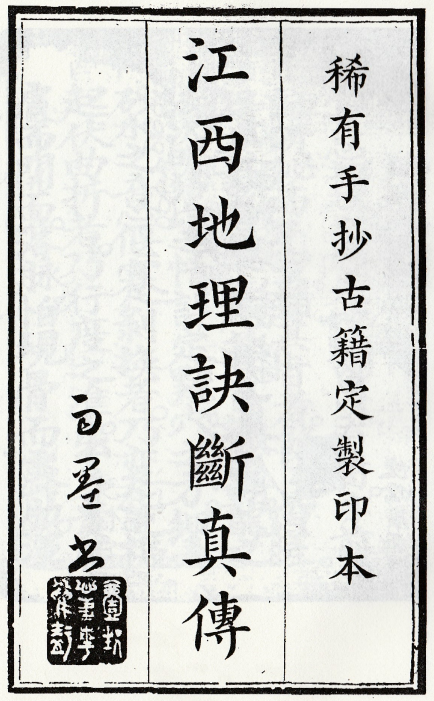 稀有手抄古籍定製印本
江西地理訣斷真傳
墨书